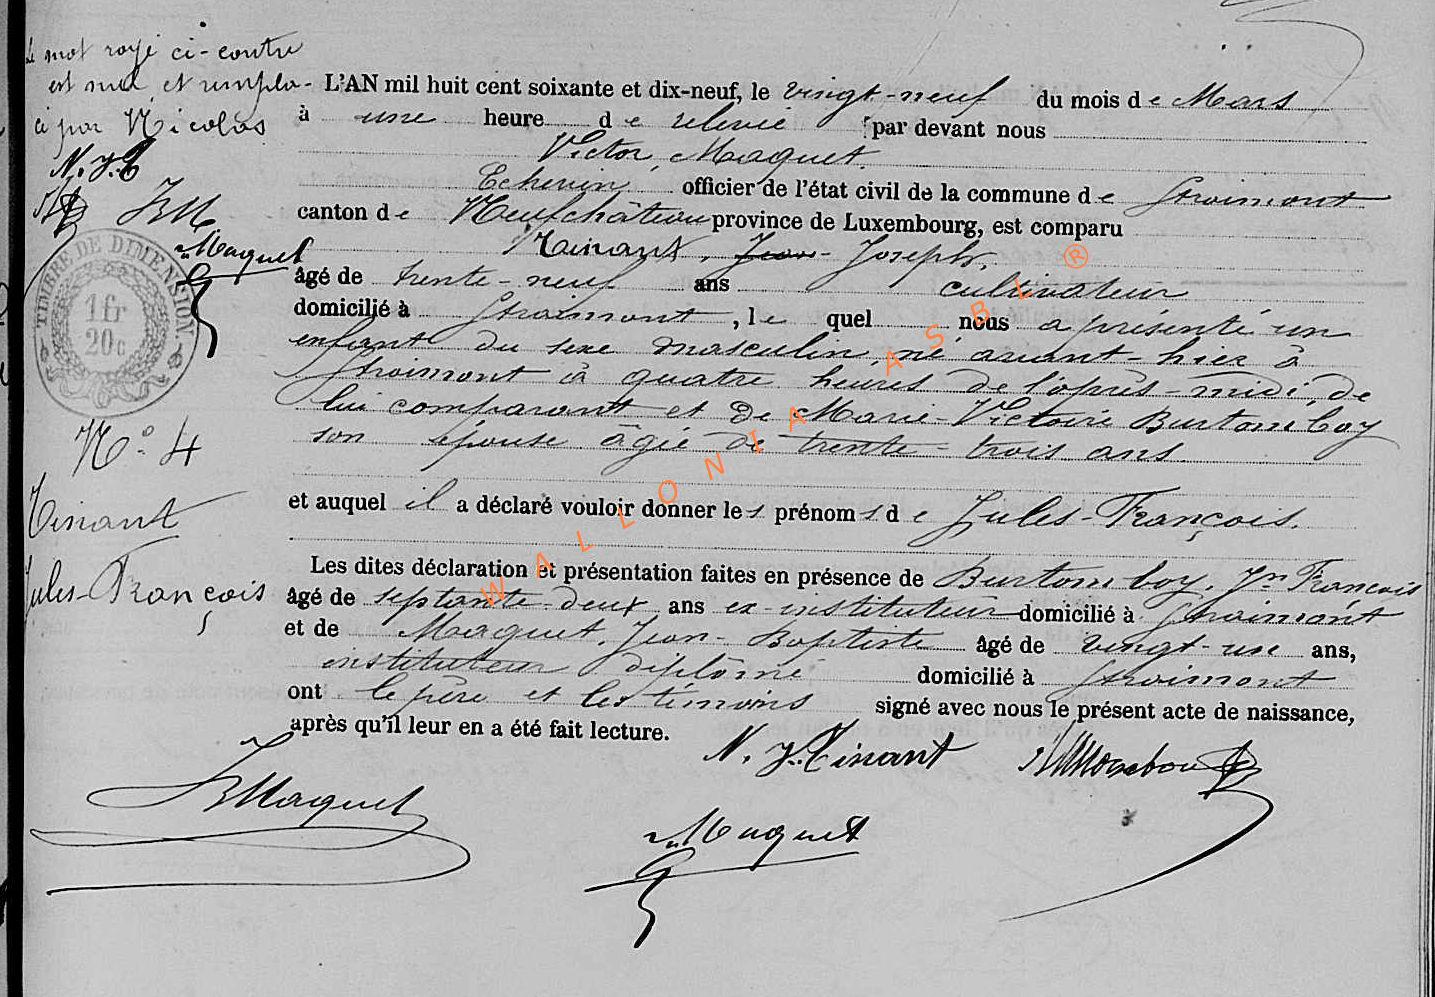 Le mot rayé ci-contre
est nul et rempla-
cé par Nicolas
N. J. T
JBM
Maquet
TIMBRE DE DIMENSION
1 fr
20 c
N° 4
Tinant
Jules-François
L'AN mil huit cent soixante et dix-neuf, le vingt-neuf du mois de Mars
à une heure de relevée par devant nous
Victor Maquet
Echevin officier de l'état civil de la commune de Straimont
canton de Neufchâteau province de Luxembourg, est comparu
Tinant, Jean-Joseph,
âgé de trente-neuf ans cultivateur
domicilié à Straimont, le quel nous a présenté un
enfant du sexe masculin, né avant-hier à
Straimont à quatre heures de l'après-midi, de
lui comparant et de Marie-Victoire Burtomboy
son épouse âgée de trente-trois ans
et auquel il a déclaré vouloir donner les prénoms de Jules-François.
Les dites déclaration et présentation faites en présence de Burtomboy, Jn François
âgé de septante-deux ans ex-instituteur domicilié à Straimont
et de Maquet, Jean-Baptiste âgé de vingt-un ans,
instituteur diplômé domicilié à Straimont
ont le père et les témoins signé avec nous le présent acte de naissance,
après qu'il leur en a été fait lecture.
N. J. Tinant
JBMaquet
Maquet
WALLONIA ASBL ®